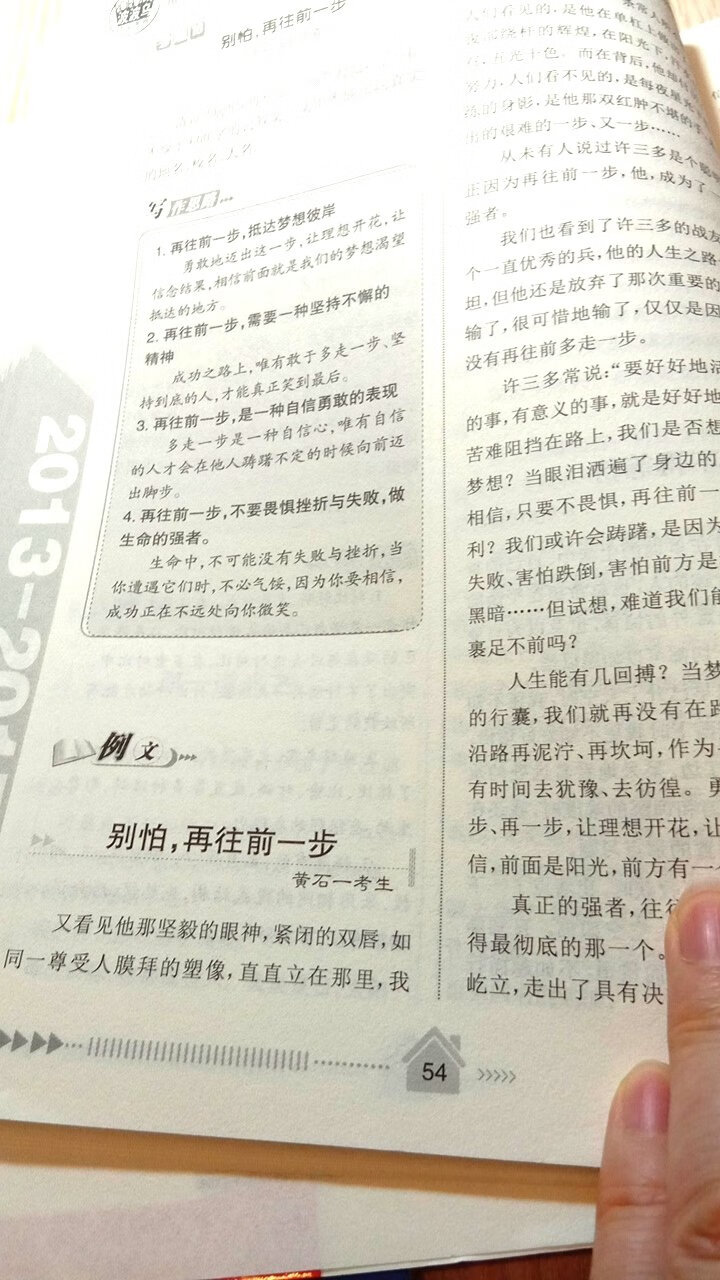 别怕,再往前一步
写作思路
1. 再往前一步,抵达梦想彼岸
勇敢地迈出这一步,让理想开花,让
信念结果,相信前面就是我们的梦想渴望
抵达的地方。
2. 再往前一步,需要一种坚持不懈的
精神
成功之路上,唯有敢于多走一步、坚
持到底的人,才能真正笑到最后。
3. 再往前一步,是一种自信勇敢的表现
多走一步是一种自信心,唯有自信
的人才会在他人踌躇不定的时候向前迈
出脚步。
4. 再往前一步,不要畏惧挫折与失败,做
生命的强者。
生命中,不可能没有失败与挫折,当
你遭遇它们时,不必气馁,因为你要相信,
成功正在不远处向你微笑。
2013-201
例文
别怕,再往前一步
黄石一考生
又看见他那坚毅的眼神,紧闭的双唇,如
同一尊受人膜拜的塑像,直直立在那里,我
人们看见的,是他在单杠上
绕杆的辉煌,在阳光下,
光十色。而在背后,他
努力,人们看不见的,是每夜星
练的身影,是他那双红肿不堪的手
出的艰难的一步、又一步……
从未有人说过许三多是个
正因为再往前一步,他,成为了
强者。
我们也看到了许三多的战友
个一直优秀的兵,他的人生之路
坦,但他还是放弃了那次重要的
输了,很可惜地输了,仅仅是因
没有再往前多走一步。
许三多常说:“要好好地活
的事,有意义的事,就是好好地
苦难阻挡在路上,我们是否想
梦想?当眼泪洒遍了身边的
相信,只要不畏惧,再往前一
利?我们或许会踌躇,是因为
失败、害怕跌倒,害怕前方是
黑暗……但试想,难道我们能
裹足不前吗?
人生能有几回搏?当梦
的行囊,我们就再没有在路
沿路再泥泞、再坎坷,作为
有时间去犹豫、去彷徨。勇
步、再一步,让理想开花,让
信,前面是阳光,前方有一
真正的强者,往
得最彻底的那一个。
屹立,走出了具有决
54